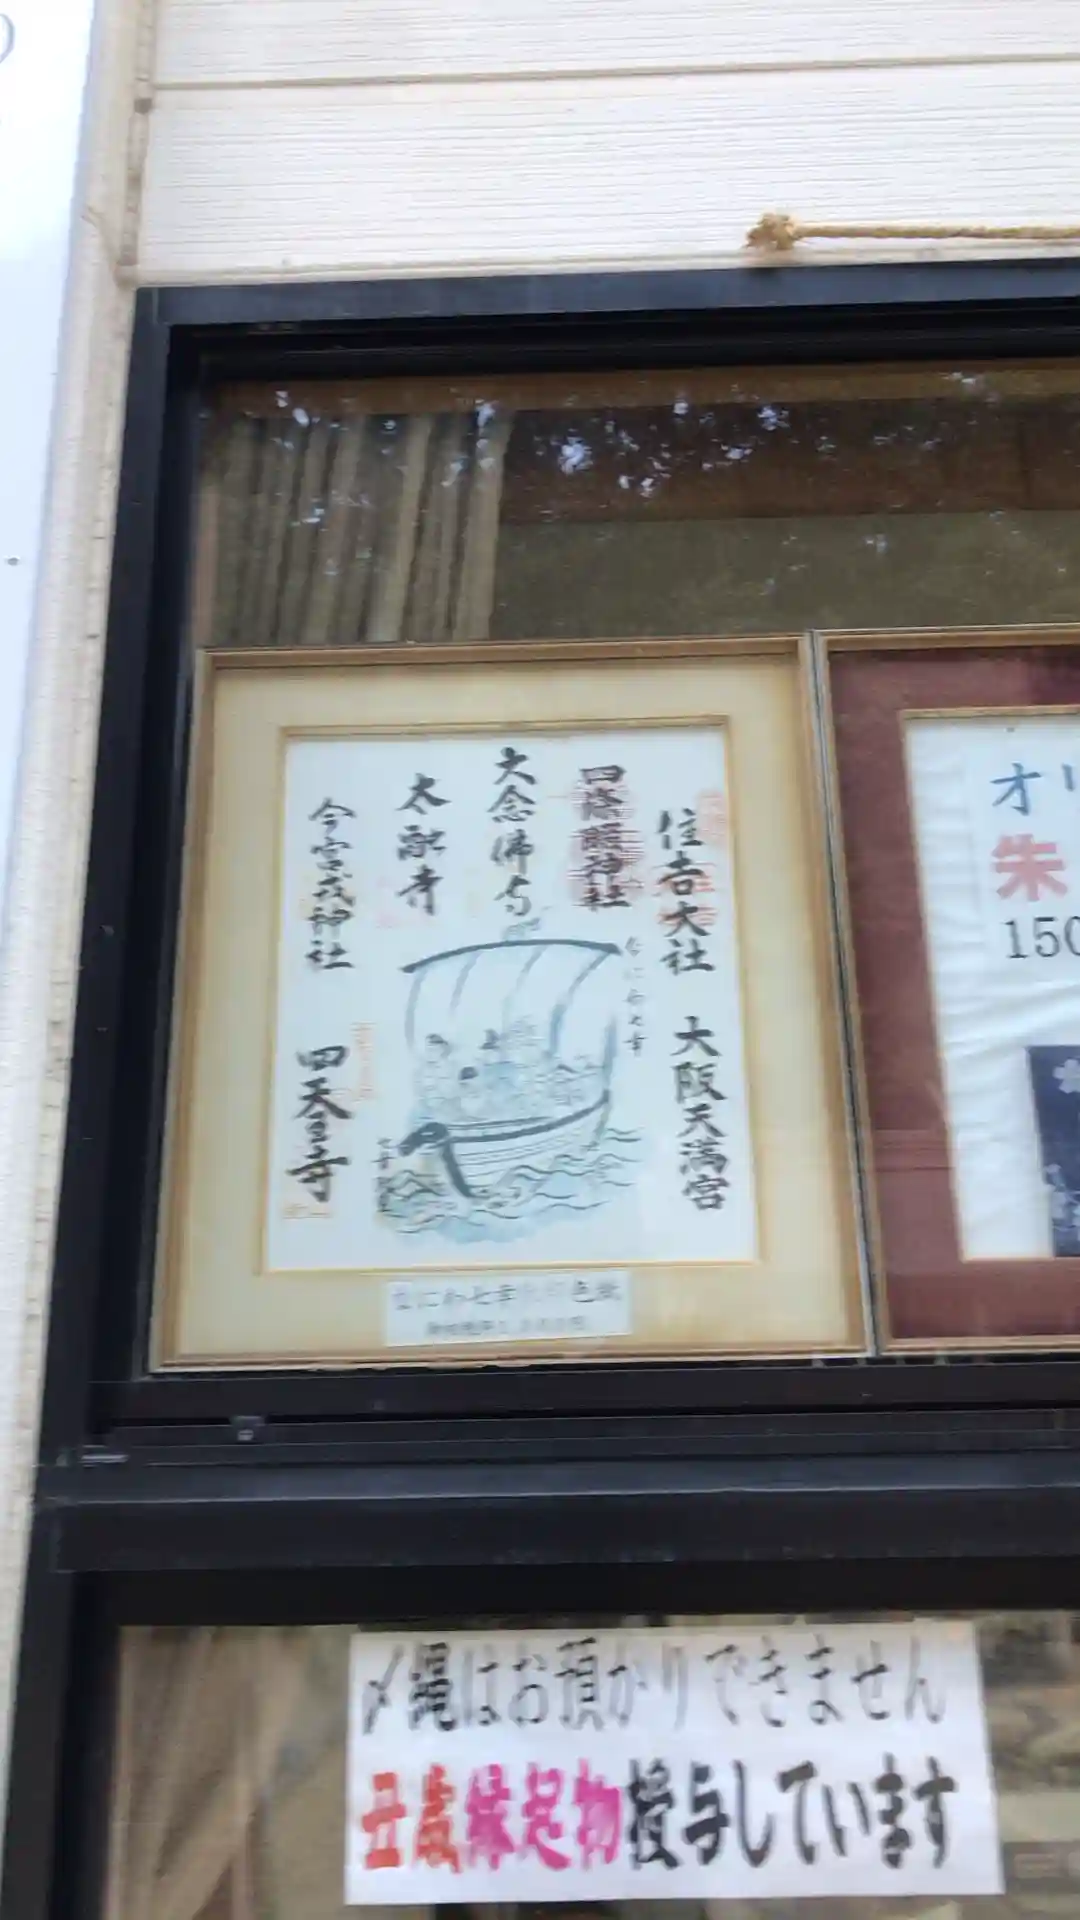 住吉大社
大阪天満宮
四條畷神社
大念佛寺
太融寺
今宮戎神社
四天王寺
なにわ七幸
なにわ七幸朱印色紙
オリ
朱
150
〆縄はお預かりできません
丑歳縁起物授与しています